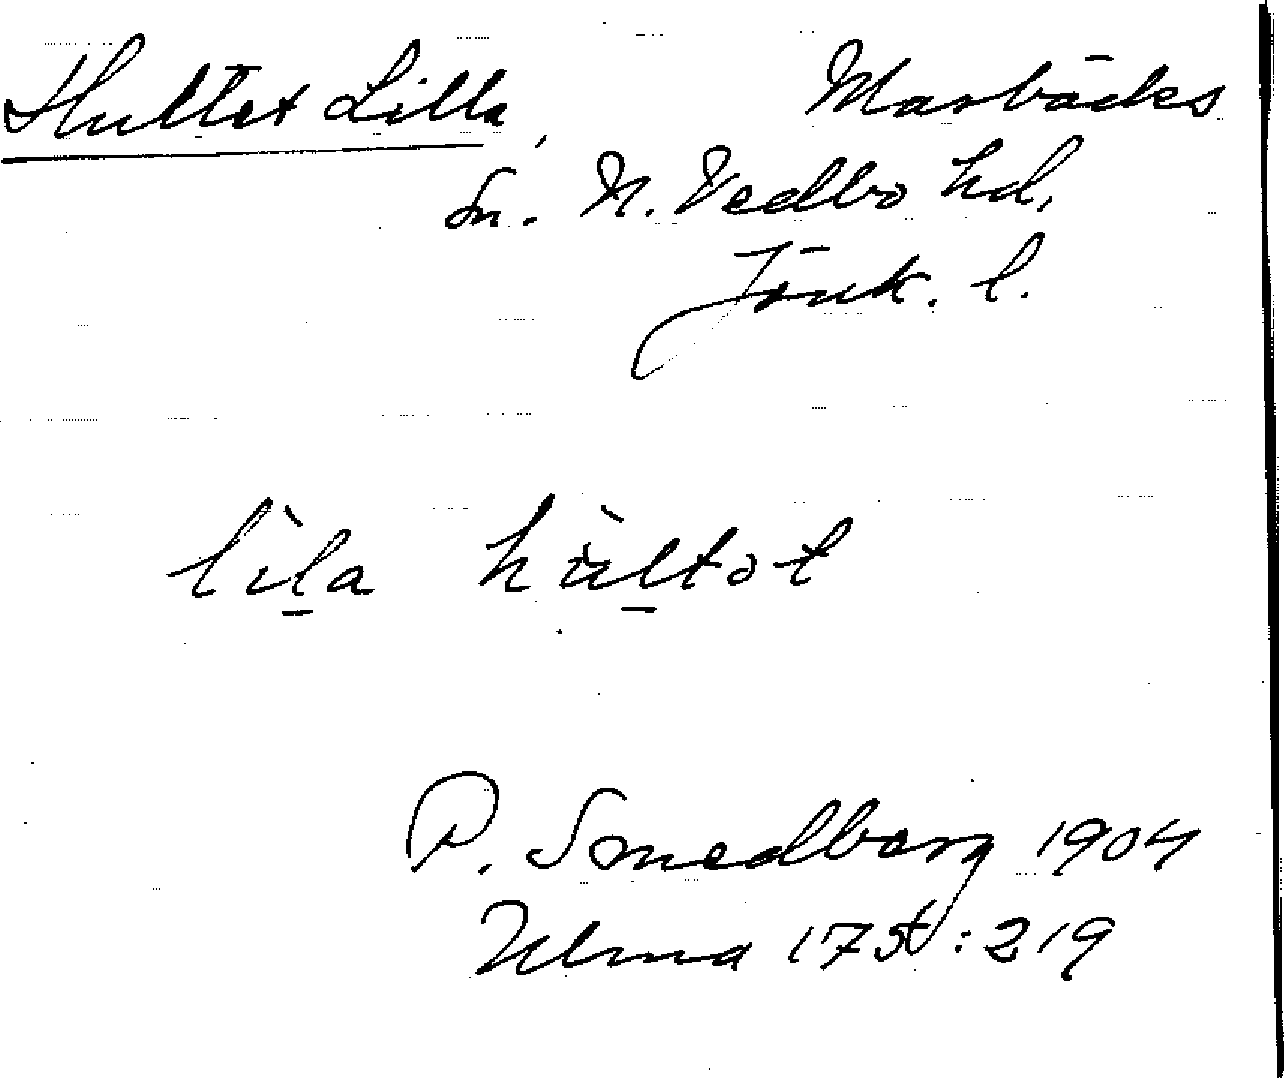 Hultet Lilla, Marbäcks
sn. N. Vedbo hd,
Jönk. l.
lìla hùltot
P. Smedberg 1904
Ulma 175:219